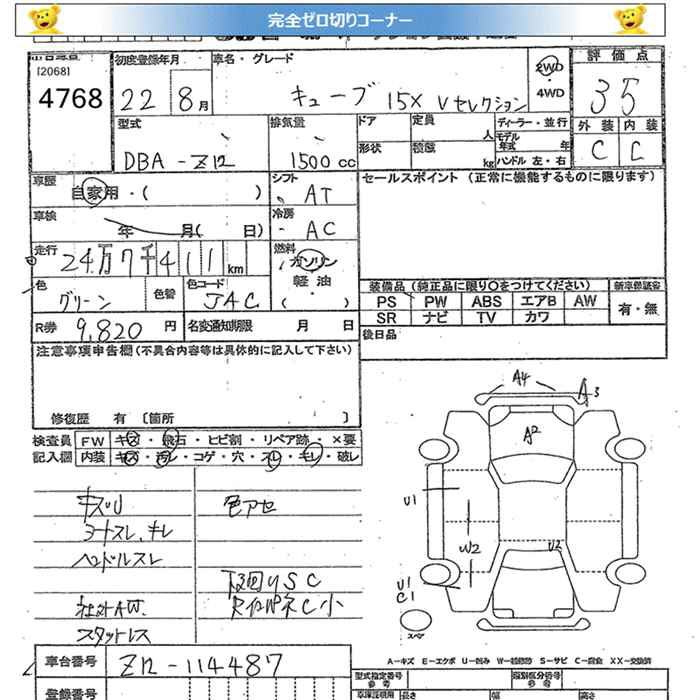 完全ゼロ切りコーナー
[2068]
4768
初度登録年月 車名・グレード 評価点
22 8月 キューブ 15X Vセレクション 2WD・4WD 35
型式 排気量 ドア 定員 人 ディーラー・並行 外装 内装
DBA-Z12 1500cc 形状 積載 kg モデル年式 年 ハンドル 左・右 C C
車歴 自家用・( ) シフト AT セールスポイント (正常に機能するものに限ります)
車検 年 月( 日) 冷房 AC
走行 24万7千411km 燃料 ガソリン 軽油 ( )
色 グリーン 色替 色コード JAC
装備品(純正品に限り〇をつけてください) 新車保証書
PS PW ABS エアB AW 有・無
SR ナビ TV カワ
R券 9,820円 名変通知期限 月 日 後日品
注意事項申告欄(不具合内容等は具体的に記入して下さい)
修復歴 有 〔箇所 〕
検査員 FW キズ・飛石・ヒビ割・リペア跡・×要
記入欄 内装 キズ・汚レ・コゲ・穴・スレ・キレ・破レ
キズU 色アセ
シートスレ、キレ
ハンドルスレ
下回りSC
社外AW.
スタッドレス
A4
A3
A2
U1
W2 U2
U1
C1
スペア
A-キズ E-エクボ U-凹み W-補修跡 S-サビ C-腐食 XX-交換済
車台番号 Z12-114487
登録番号
型式指定番号 類別区分番号
参考 参考
長さ 幅 高さ